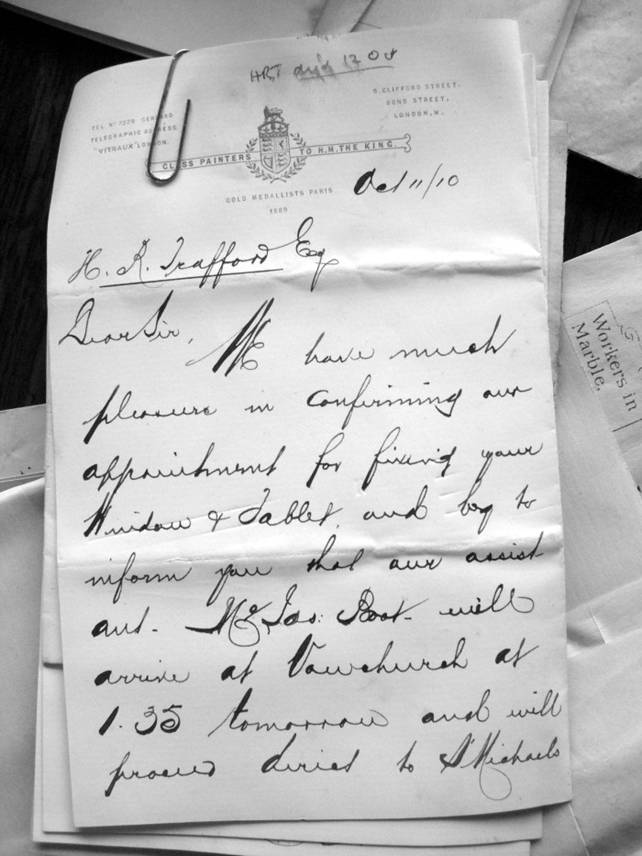 HRT Aug 12 08
TEL Nº 7229 GERRARD
TELEGRAPHIC ADDRESS,
"VITRAUX" LONDON.
5, CLIFFORD STREET,
BOND STREET,
LONDON, W.
GLASS PAINTERS TO H.M. THE KING.
GOLD MEDALLISTS PARIS
1889
Oct 11/10
H. R. Trafford Esq
Dear Sir,
We have much
pleasure in confirming our
appointment for fixing your
Window & Tablet, and beg to
inform you that our assist
ant. Mr Jas: will
arrive at Vowchurch at
1.35 tomorrow and will
proceed direct to St Michaels
Workers in
Marble,